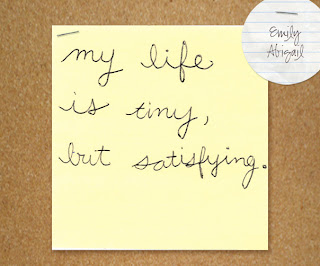 my life
is tiny,
but satisfying.
Emily
Abigail